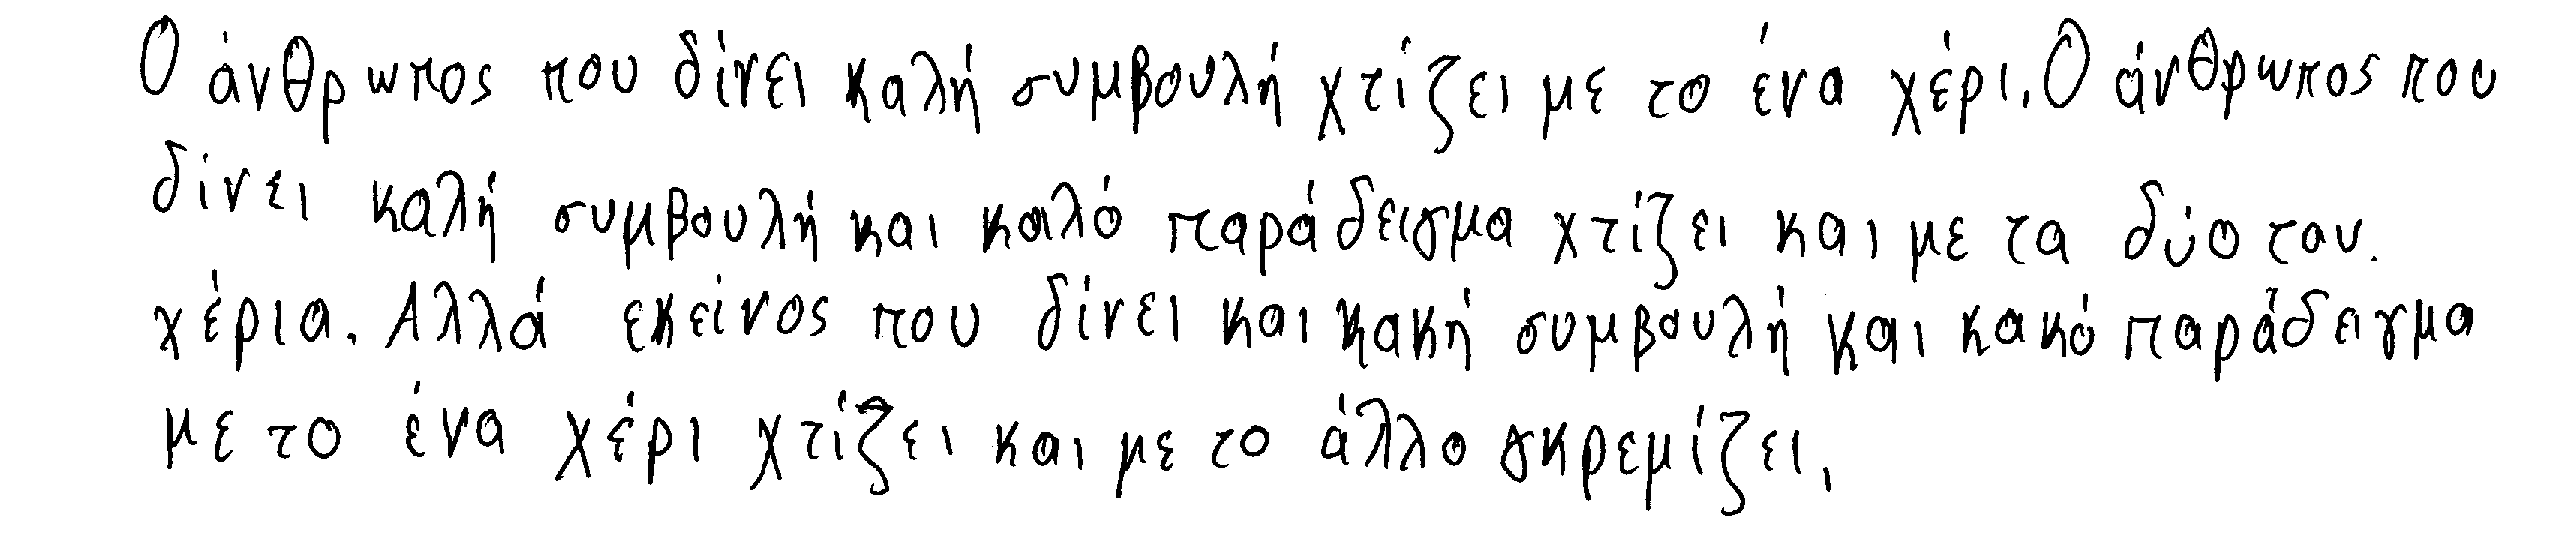 Ο άνθρωπος που δίνει καλή συμβουλή χτίζει με το ένα χέρι. Ο άνθρωπος που
δίνει καλή συμβουλή και καλό παράδειγμα χτίζει και με τα δύο του.
χέρια. Αλλά εκείνος που δίνει και κακή συμβουλή και κακό παράδειγμα
με το ένα χέρι χτίζει και με το άλλο γκρεμίζει.